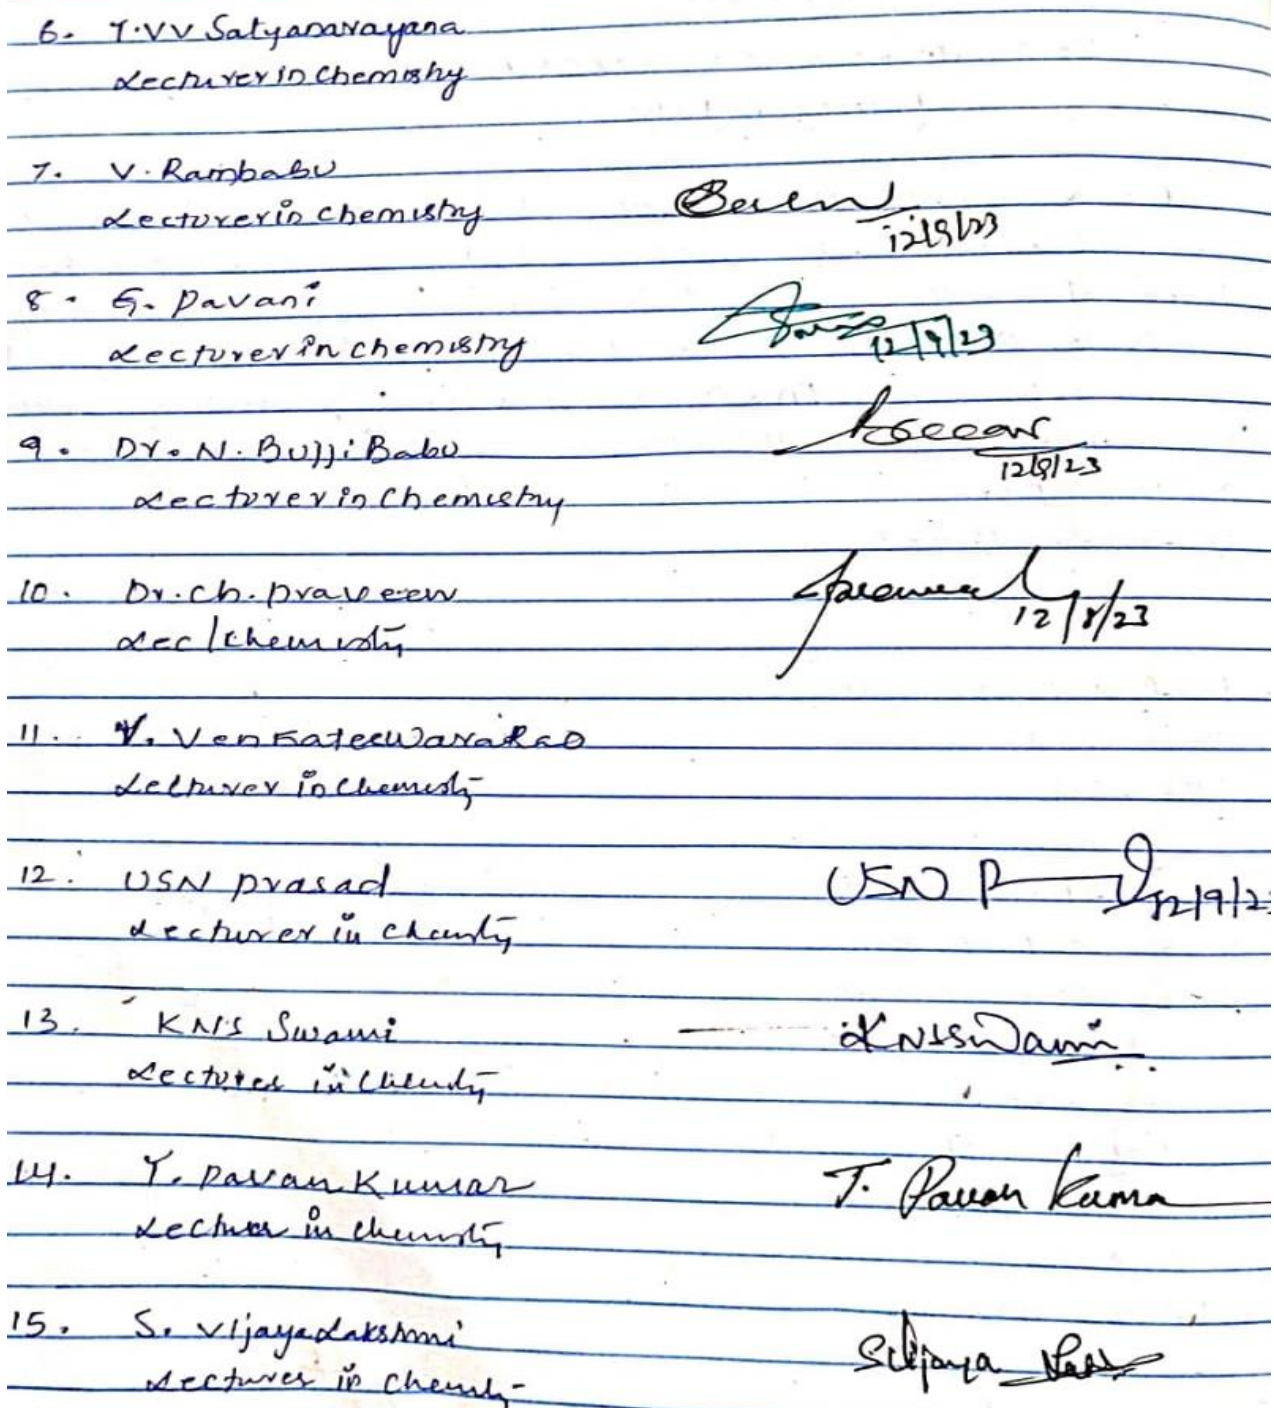 6. T.VV Satyanarayana
Lecturer in Chemistry
7. V. Rambabu
Lecturer in chemistry
12/9/23
8. G. Pavani
Lecturer in chemistry
12/9/23
9. Dr. N. Bujji Babu
Lecturer in Chemistry
12/9/23
10. Dr. Ch. Praveen
Lec/chemistry
12/8/23
11. V. VenkateswaraRao
Lecturer in Chemistry
12. USN Prasad
USN P
12/9/23
Lecturer in Chemistry
13. KNS Swami
KNSSwami
Lecturer in Chemistry
14. T. Pavan Kumar
T. Pavan Kuma
Lecturer in chemistry
15. S. Vijaya Lakshmi
SVijaya
Lecturer in Chemistry